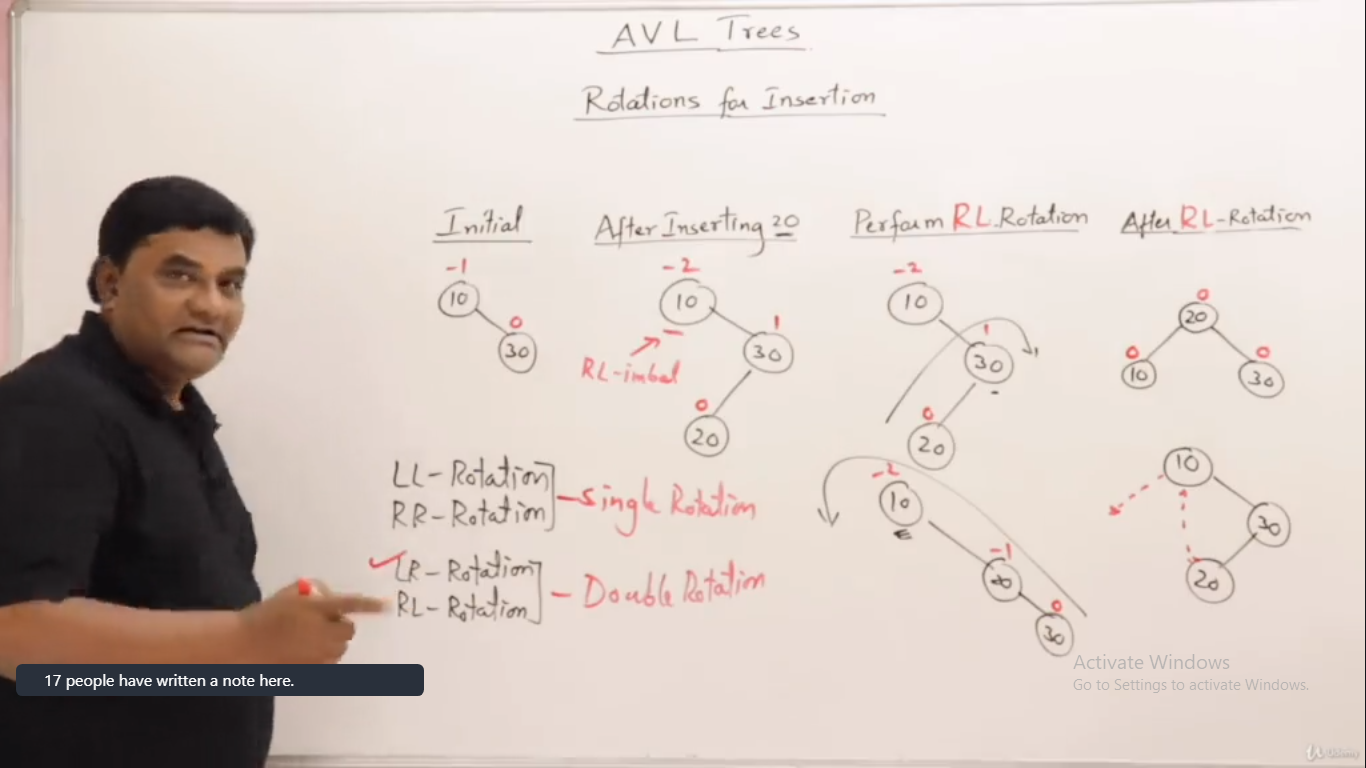 AVL Trees
Rotations for Insertion
Initial
-1
10
0
30
After Inserting 20
-2
10
1
30
RL-imbal
0
20
Perform RL Rotation
-2
10
1
30
0
20
-2
10
-1
20
0
30
After RL-Rotation
0
20
0
10
0
30
10
30
20
LL-Rotation
RR-Rotation
Single Rotation
LR-Rotation
RL-Rotation
Double Rotation
17 people have written a note here.
Activate Windows
Go to Settings to activate Windows.
Udemy